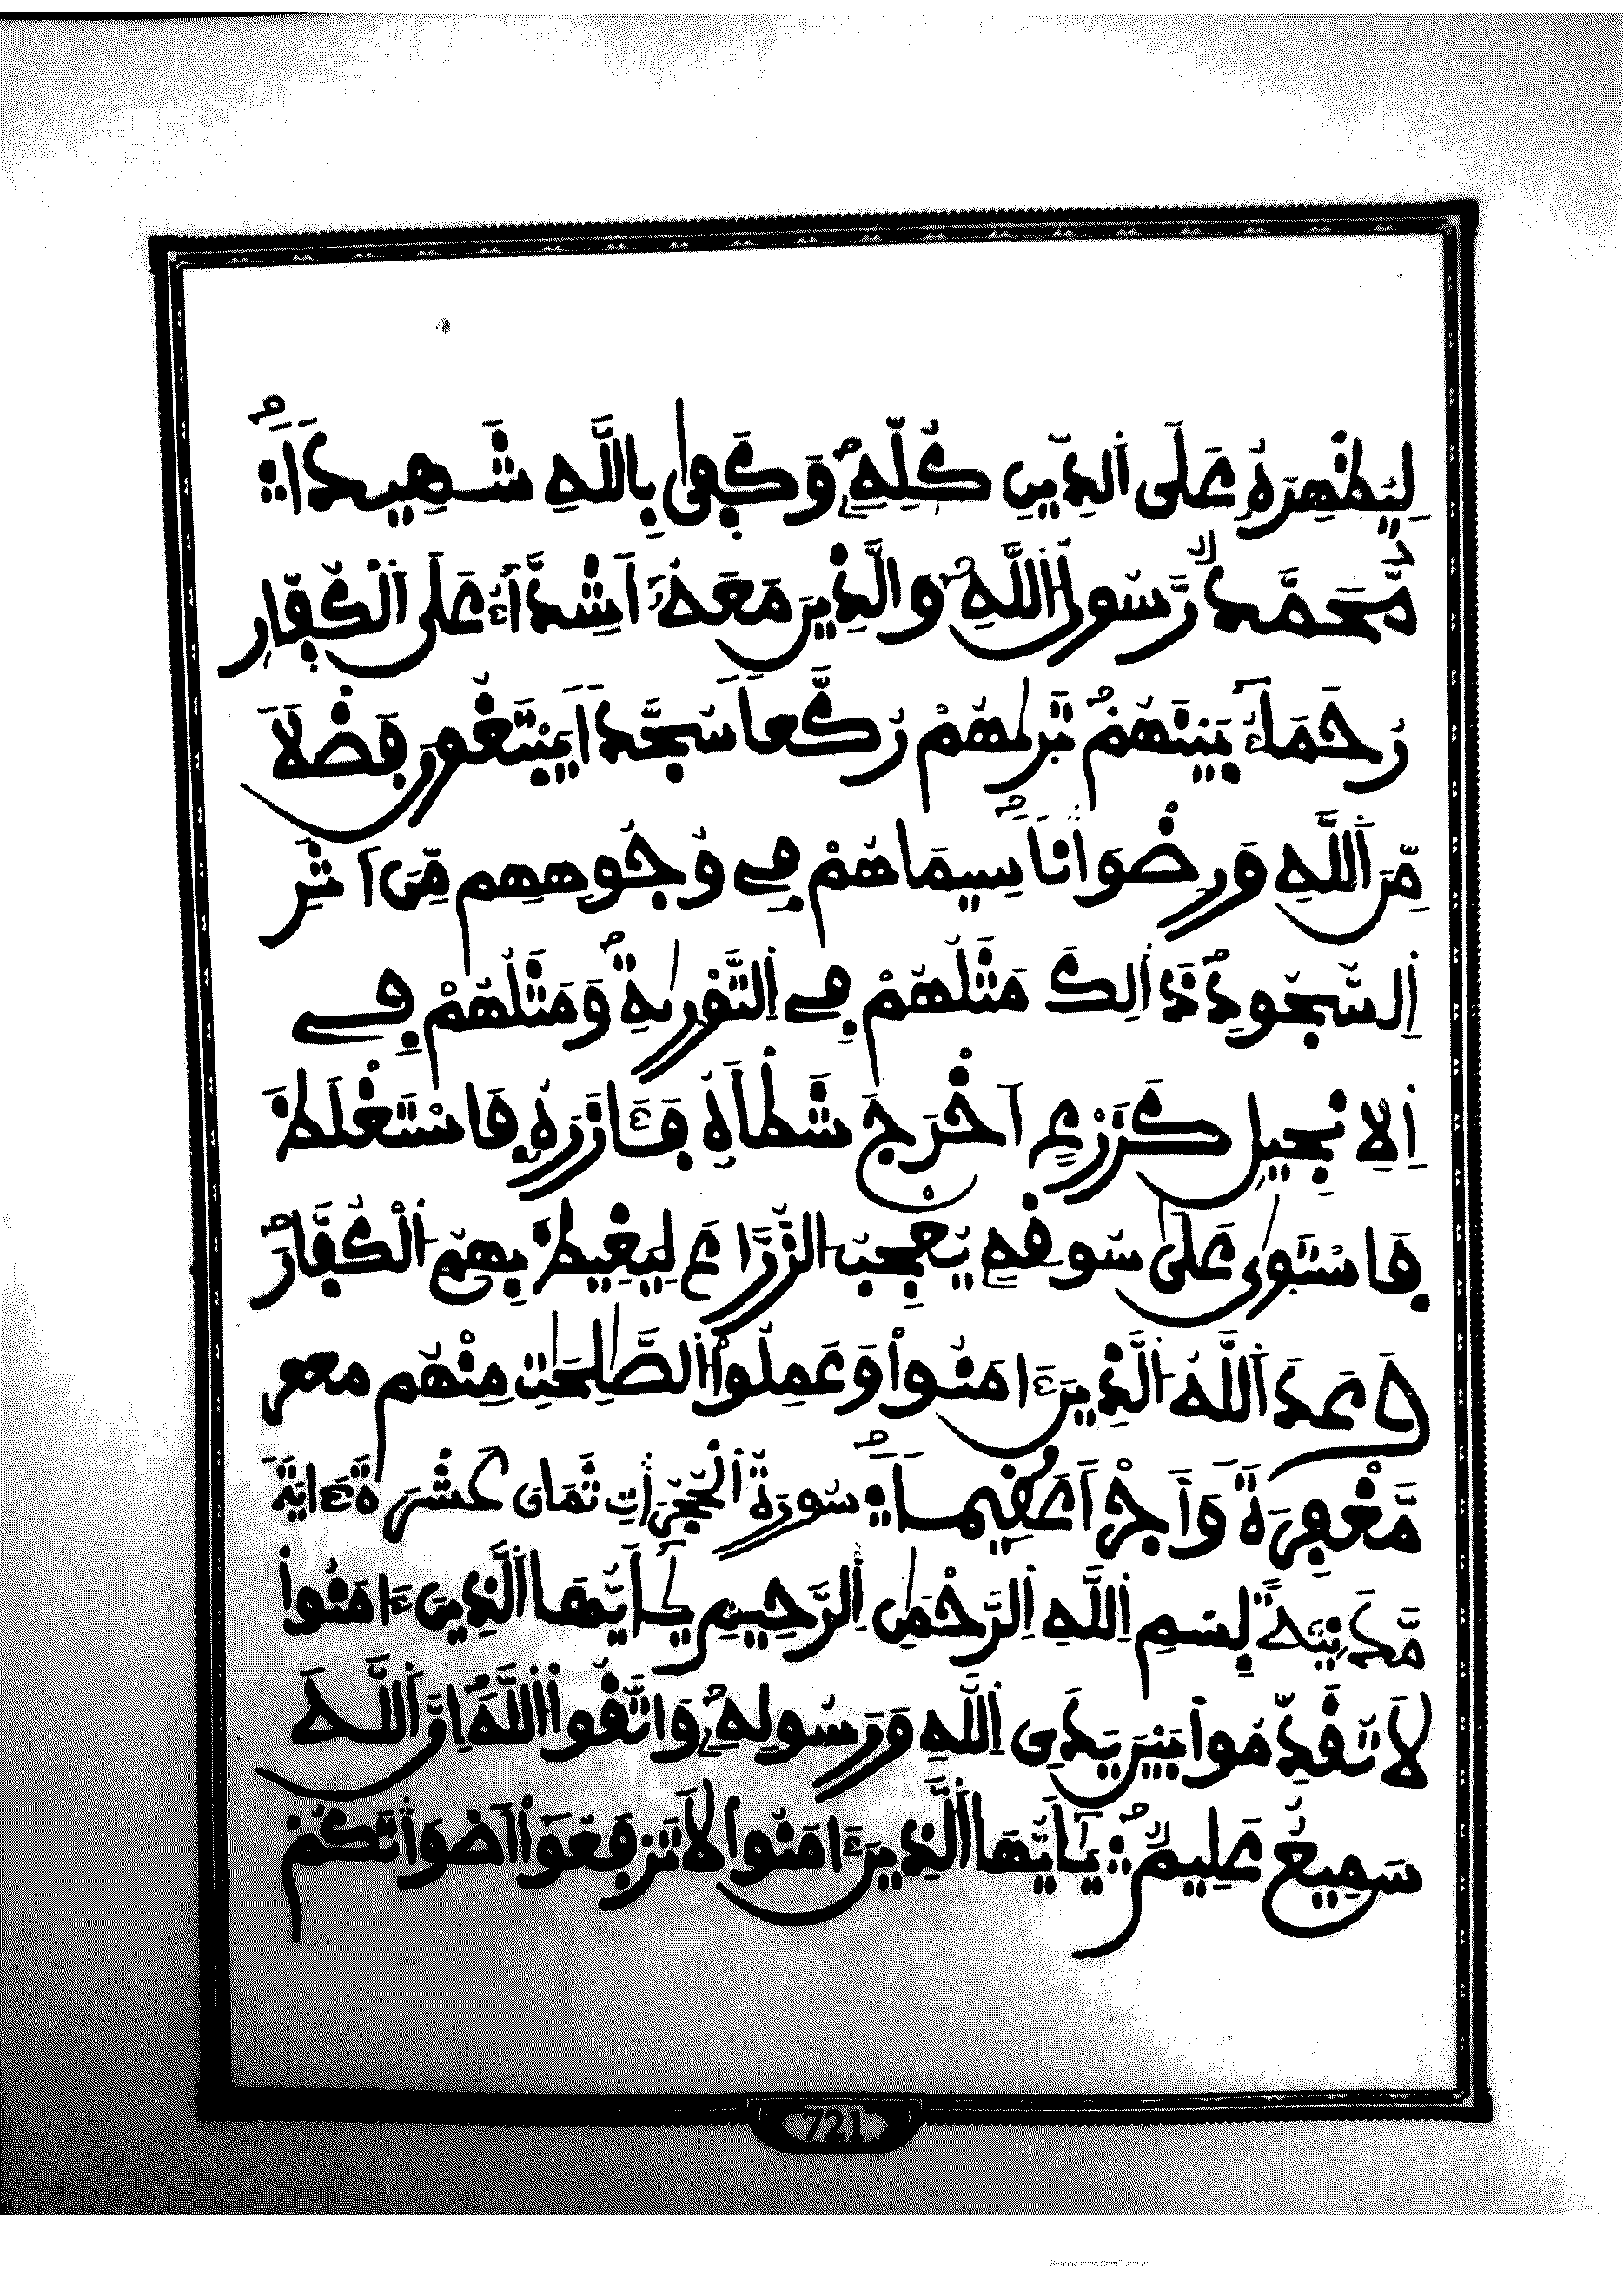 لِيُظْهِرَهُۥ عَلَى اَ۬لدِّينِ كُلِّهِۦۖ وَكَف۪ىٰ بِاللَّهِ شَهِيداٗۖ
مُّحَمَّدٞ رَّسُولُ اُ۬للَّهِۖ وَالذِينَ مَعَهُۥٓ أَشِدَّآءُ عَلَى اَ۬لْكُفّ۪ارِ
رُحَمَآءُ بَيْنَهُمْۖ تَر۪ىٰهُمْ رُكَّعاٗ سُجَّداٗ يَبْتَغُونَ ف۪ضْلاٗ
مِّنَ اَ۬للَّهِ وَرِضْوَٰناٗۖ سِيمَاهُمْ ف۪ے وُجُوهِهِم مِّنَ اَثَرِ
اِ۬لسُّجُودِۖ ذَٰلِكَ مَثَلُهُمْ ف۪ے اِ۬لتَّوْر۪ىٰةِۖ وَمَثَلُهُمْ ف۪ے
اِ۬لِانجِيلِ كَزَرْعٍ اَخْرَجَ شَطْـَٔهُۥ ف۪ـَٔازَرَهُۥ ف۪اسْتَغْلَظَ
ف۪اسْتَوَىٰ عَلَىٰ سُوقِهِۦ يُعْجِبُ اُ۬لزُّرَّاعَ لِيَغِيظَ بِهِمُ اُ۬لْكُفّ۪ارَۖ
وَعَدَ اَ۬للَّهُ اُ۬لذِينَ ءَامَنُواْ وَعَمِلُواْ اُ۬لصَّٰلِحَٰتِ مِنْهُم مغفر
مَّغْفِرَةٗ وَأَجْراً عَظِيماٗۖ سُورَةُ اُ۬لْحُجُرَٰتِ ثَمَان عَشْرَةَ ءَايَةٗ
مَّدَنِيَّةٌ بِسْمِ اِ۬للَّهِ اِ۬لرَّحْمَٰنِ اِ۬لرَّحِيمِ يَٰٓأَيُّهَا اَ۬لذِينَ ءَامَنُواْ
لَا تُقَدِّمُواْ بَيْنَ يَدَيِ اِ۬للَّهِ وَرَسُولِهِۦۖ وَاتَّقُواْ اُ۬للَّهَۖ إِنَّ اَ۬للَّهَ
سَمِيعٌ عَلِيمٞۖ يَٰٓأَيُّهَا اَ۬لذِينَ ءَامَنُواْ لَا تَرْفَعُوٓاْ أَصْوَٰتَكُمْ
721